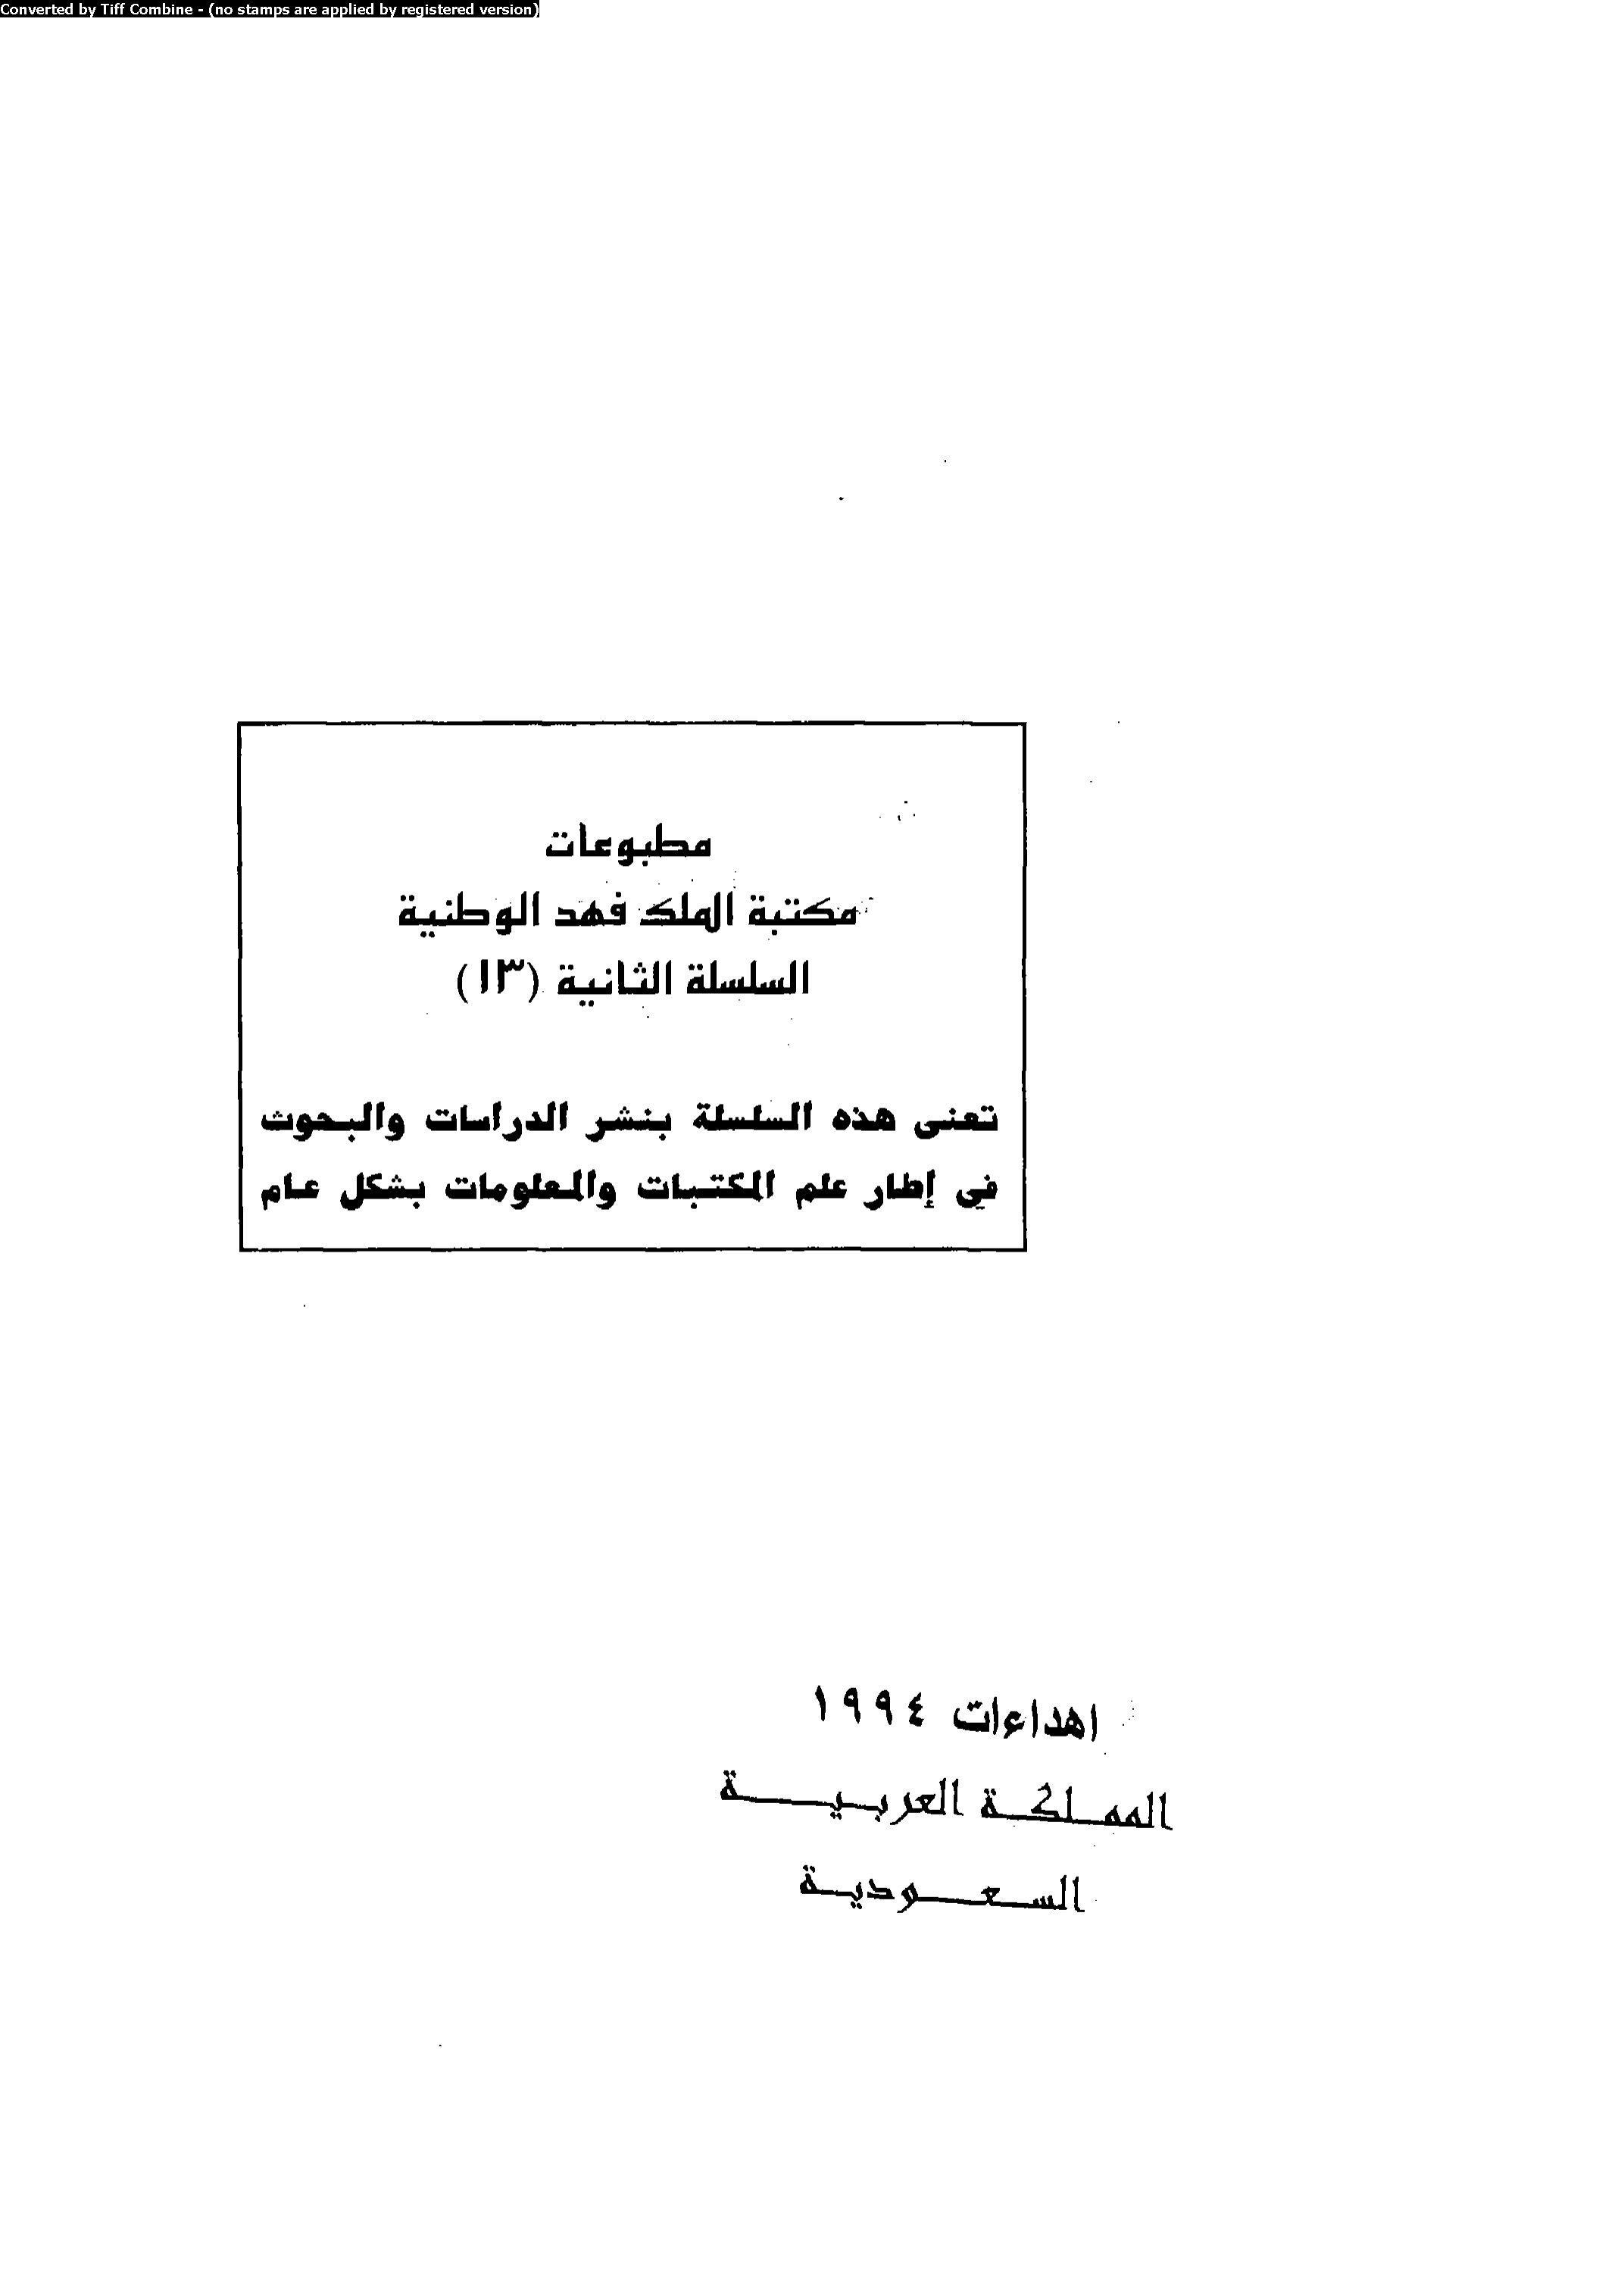 Converted by Tiff Combine - (no stamps are applied by registered version)
مطبوعات
مكتبة الملك فهد الوطنية
السلسلة الثانية (١٣)
تعنى هذه السلسلة بنشر الدراسات والبحوث
في إطار علم المكتبات والمعلومات بشكل عام
اهداءات ١٩٩٤
المملكة العربية
السعودية